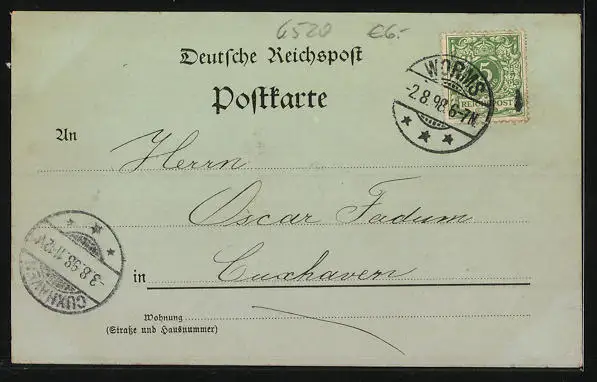 6520 €6.-
Deutsche Reichspost
Postkarte
WORMS
-2.8.98.6-7N.
5
REICHSPOST
An Herrn
Oscar Fadum
CUXHAVEN
-3.8.98.11-12V.
in Cuxhaven
Wohnung
(Straße und Hausnummer)